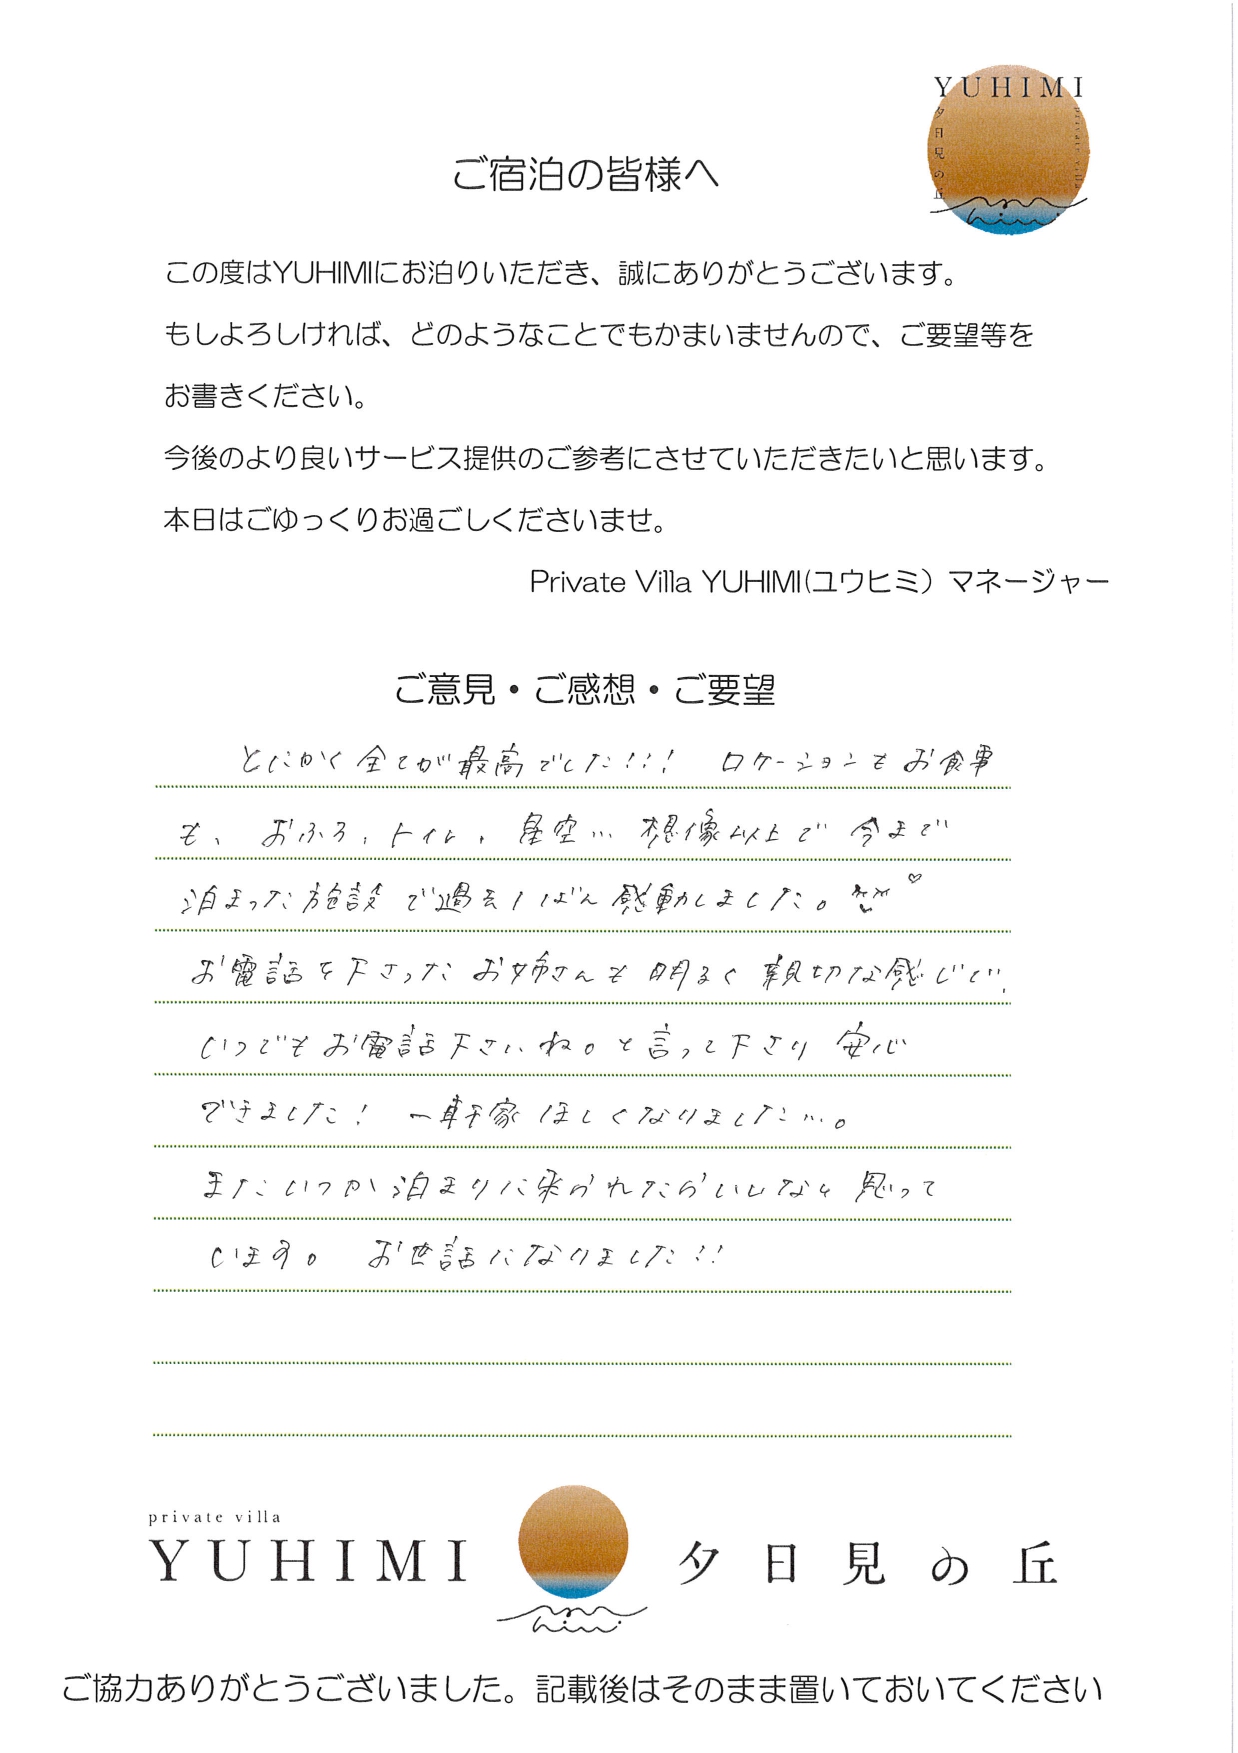 YUHIMI
夕日見の丘
ご宿泊の皆様へ
この度はYUHIMIにお泊りいただき、誠にありがとうございます。
もしよろしければ、どのようなことでもかまいませんので、ご要望等を
お書きください。
今後のより良いサービス提供のご参考にさせていただきたいと思います。
本日はごゆっくりお過ごしくださいませ。
Private Villa YUHIMI(ユウヒミ）マネージャー
ご意見・ご感想・ご要望
とにかく全てが最高でした!!! ロケーションもお食事
も、おふろ、トイレ、星空… 想像以上で 今まで
泊まった施設で過去1ばん感動しました。♡
お電話を下さったお姉さんも明るく親切な感じで、
いつでもお電話下さいね。と言って下さり 安心
できました! 一軒家ほしくなりました…。
またいつか泊まりに来られたらいいなと思って
います。 お世話になりました!!
private villa
YUHIMI 夕日見の丘
ご協力ありがとうございました。記載後はそのまま置いておいてください